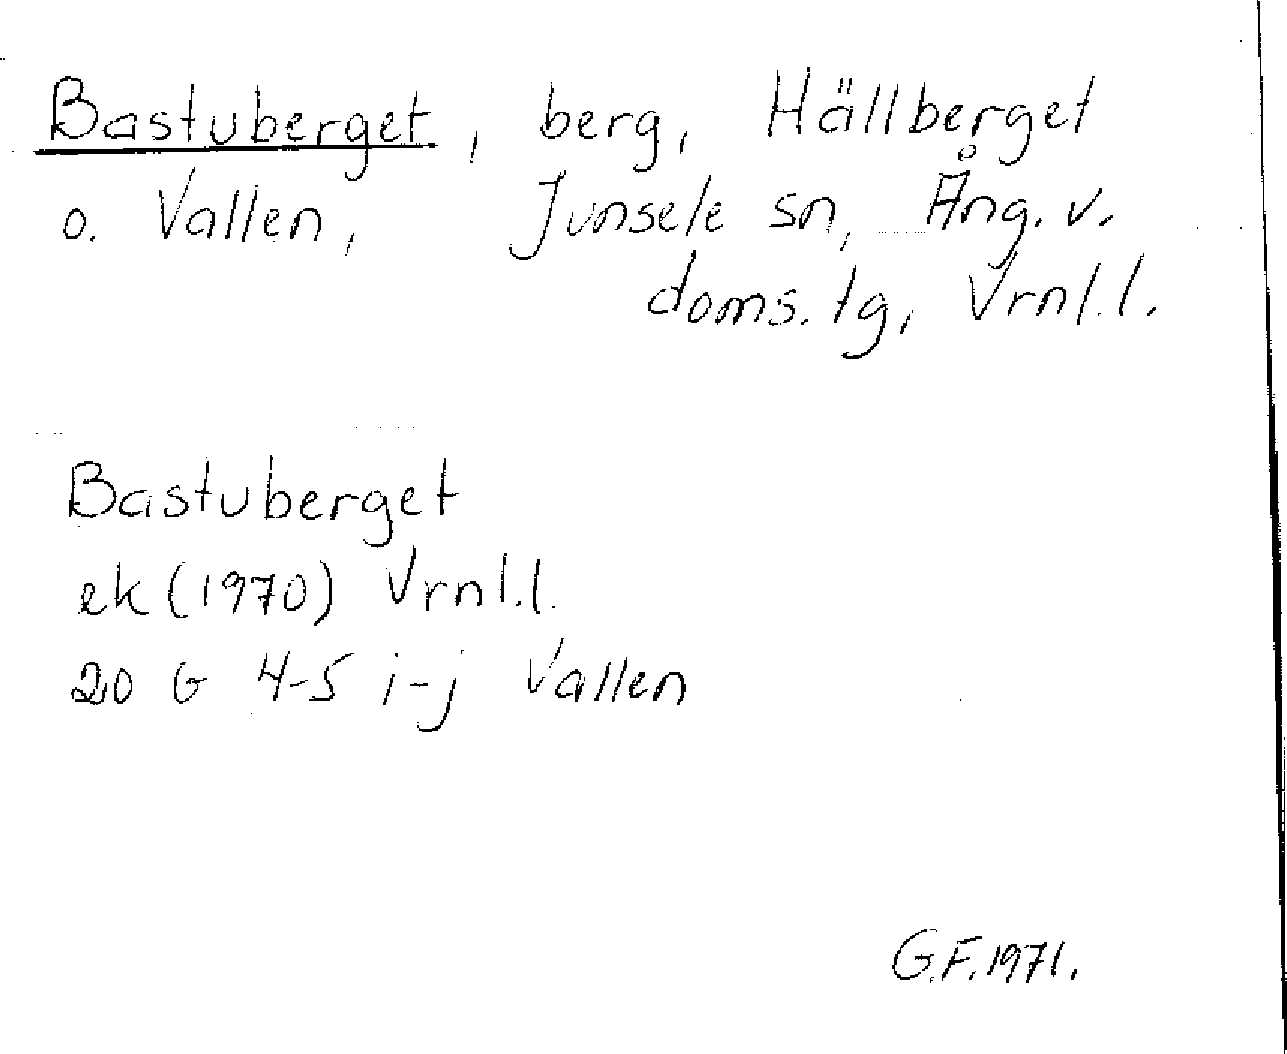 Bastuberget, berg, Hällberget
o. Vallen, Junsele sn, Ång. v.
doms. tg, Vrnl.l.
Bastuberget
ek (1970) Vrnl.l.
20 G 4-5 i-j Vallen
G.F. 1971.